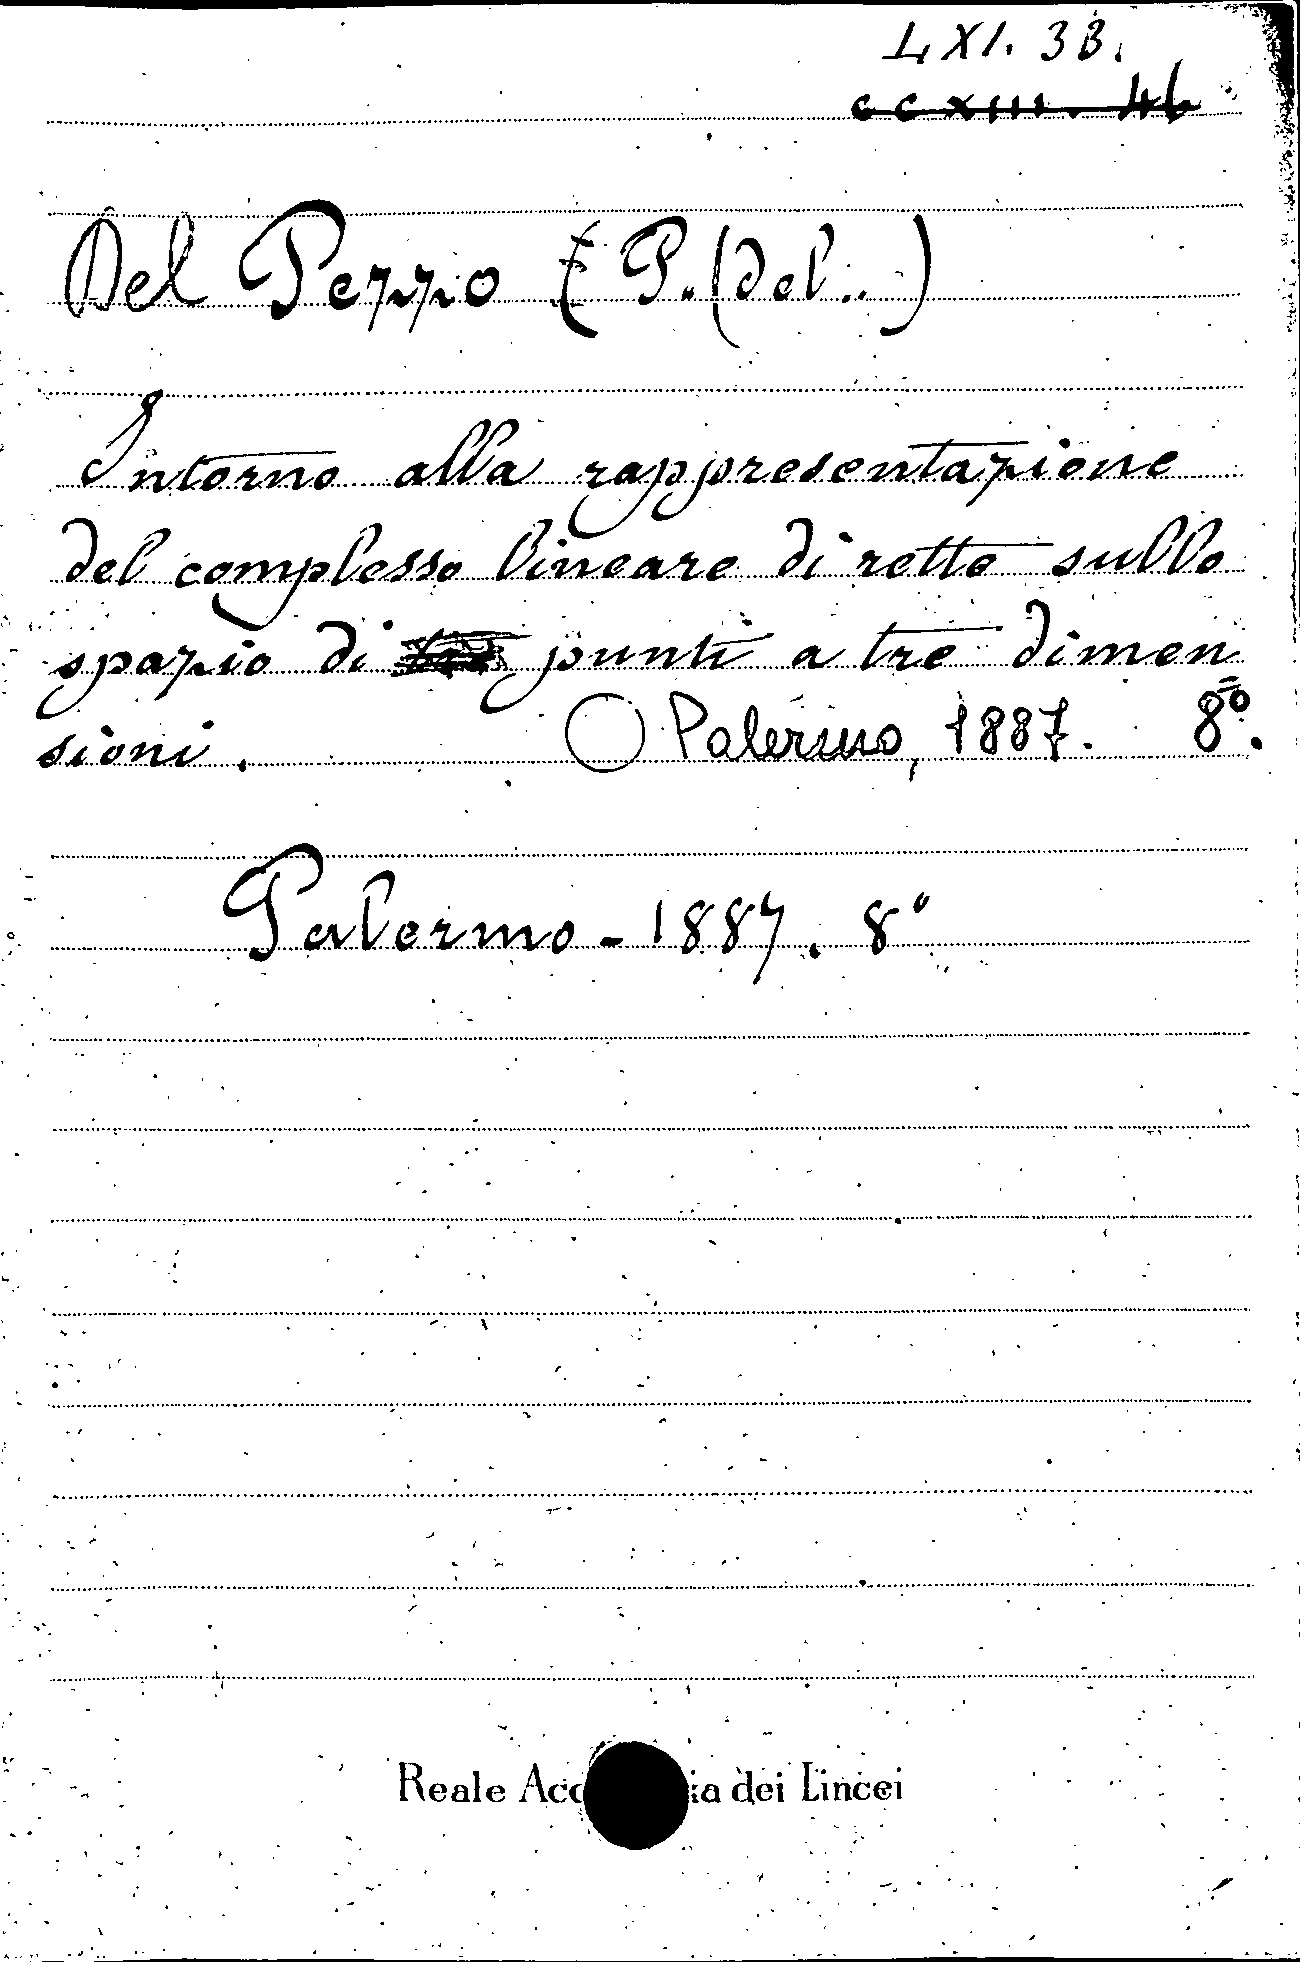 LXI. 3B.
CCXIII. 46
Del Pezzo (P. (del..)
Intorno alla rappresentazione
del complesso lineare di rette sullo
spazio di punti a tre dimen
sioni. Palermo, 1887. 8º.
Palermo - 1887. 8º
Reale Acc ia dei Lincei